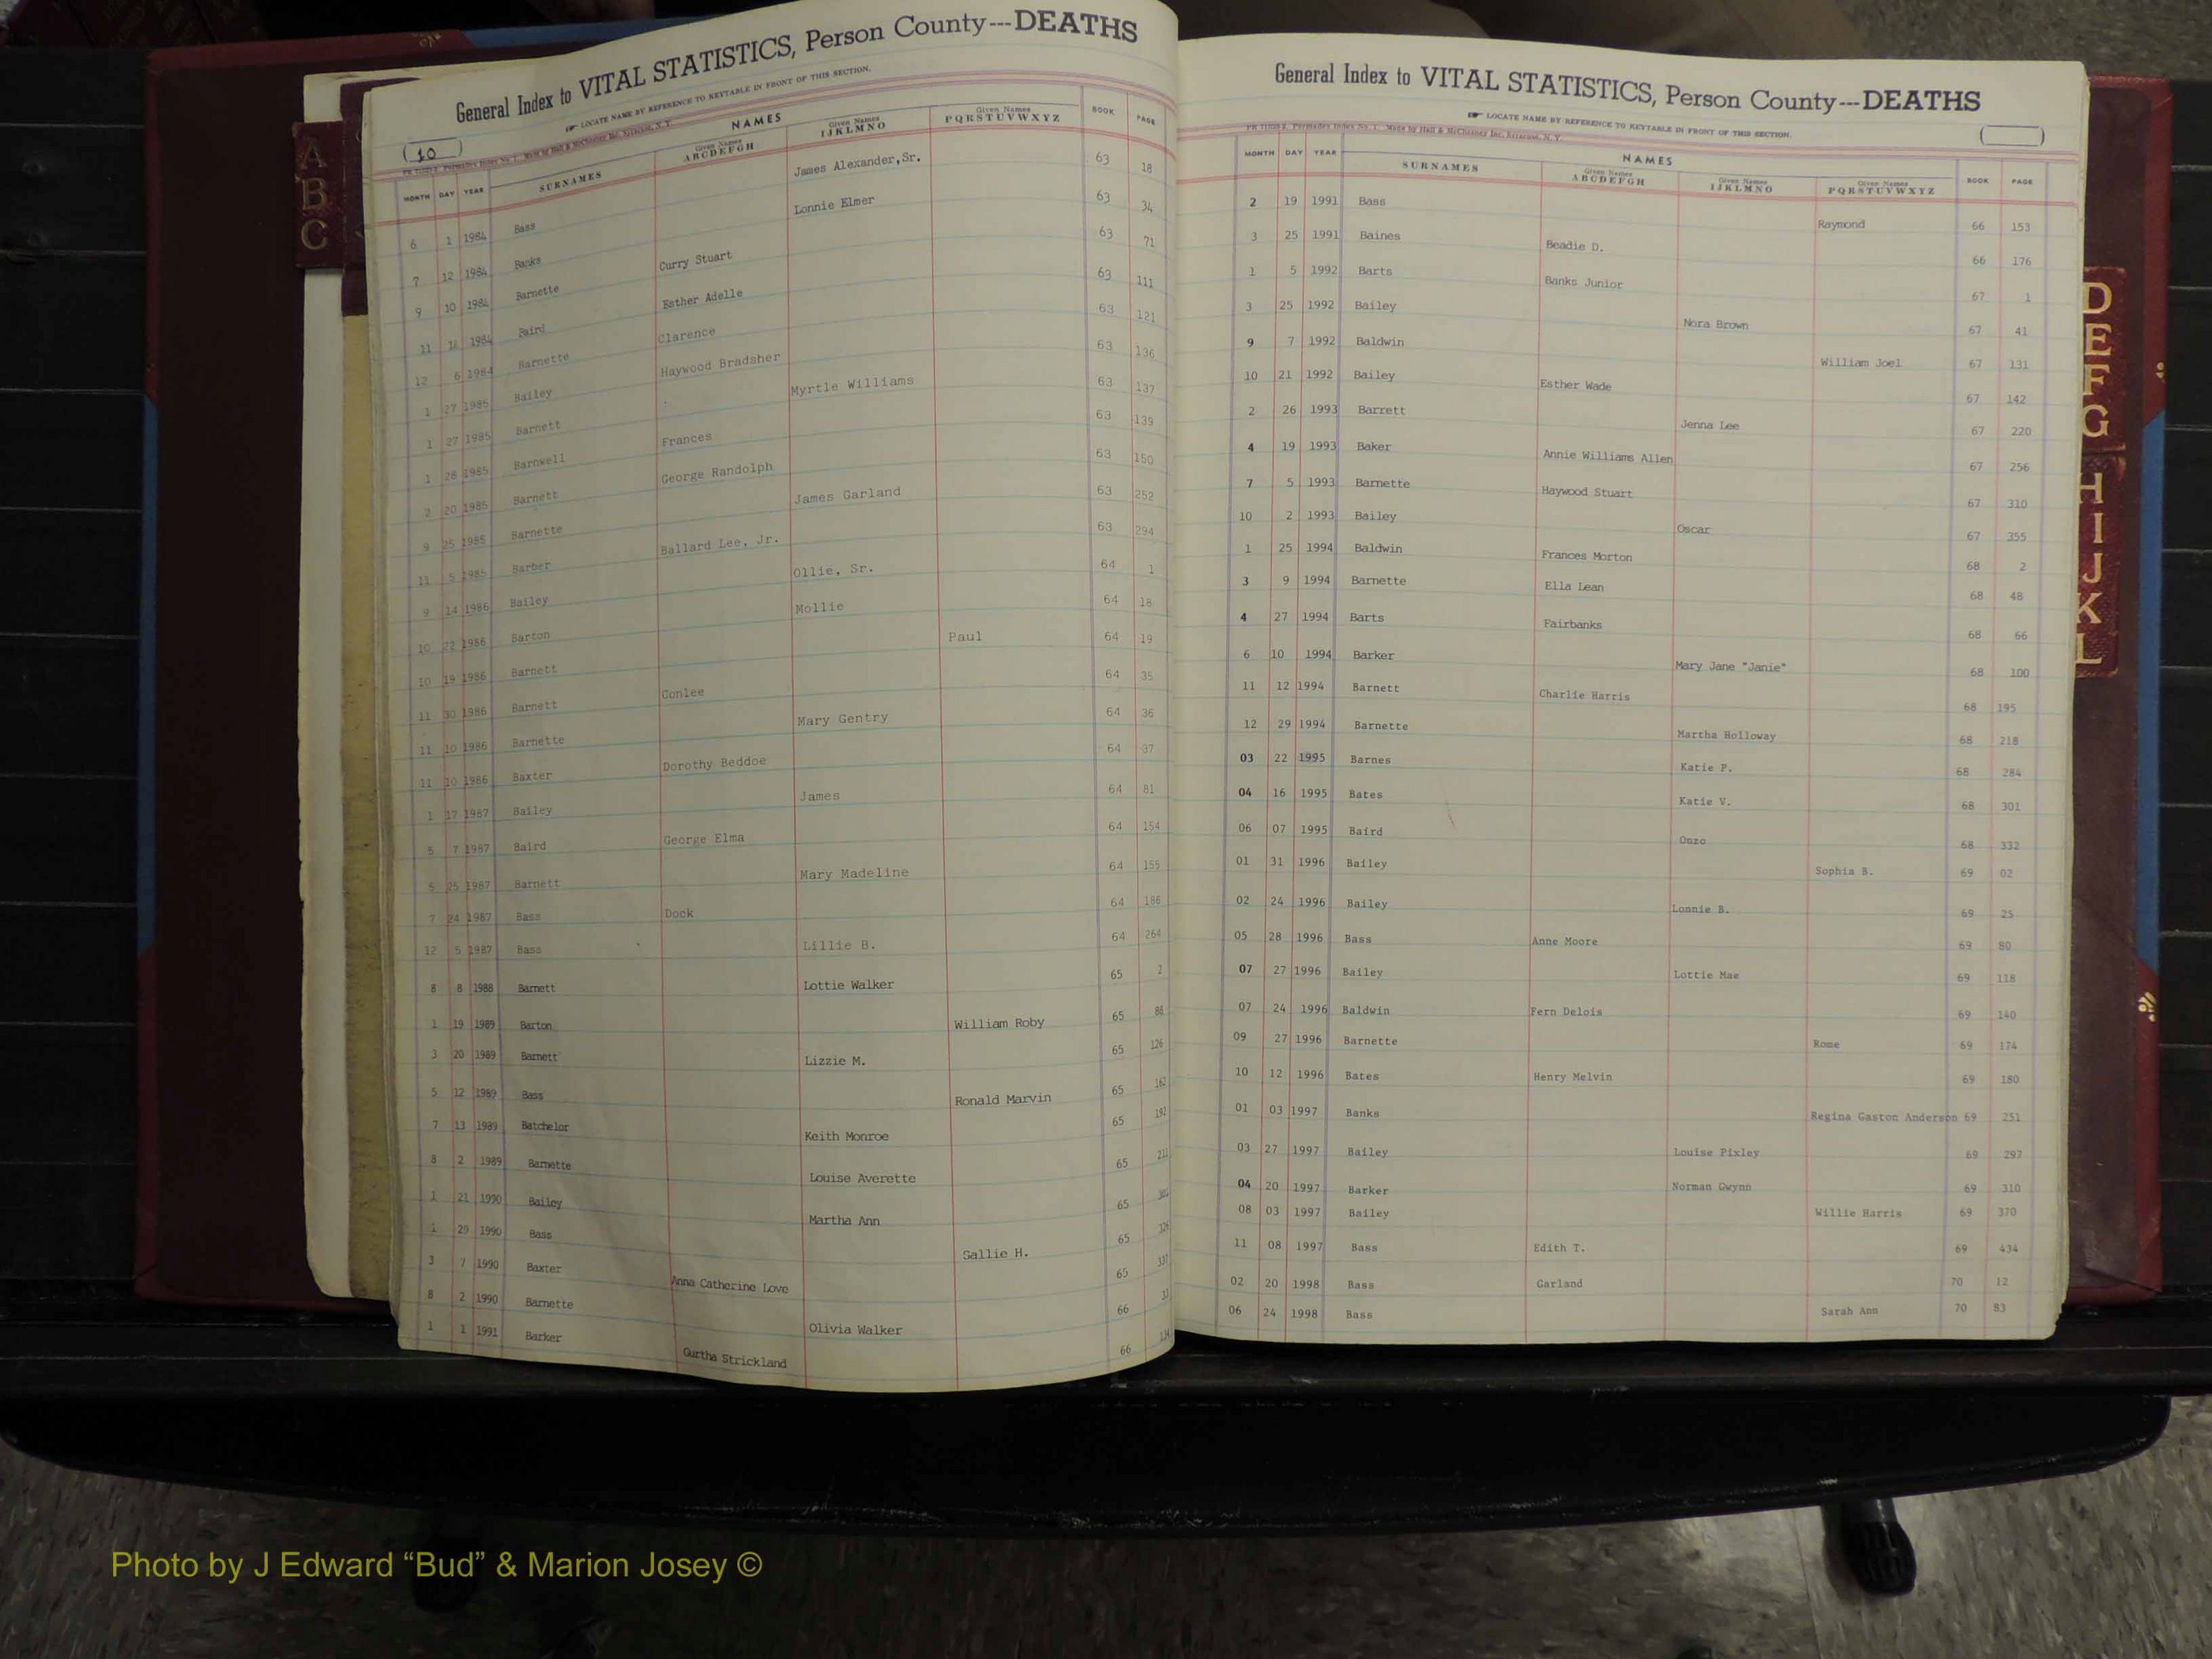 General Index to VITAL STATISTICS, Person County---DEATHS
LOCATE NAME BY REFERENCE TO KEYTABLE IN FRONT OF THIS SECTION.
10
NAMES
MONTH DAY YEAR SURNAMES Given Names ABCDEFGH Given Names IJKLMNO Given Names PQRSTUVWXYZ BOOK PAGE
6 1 1984 Bass James Alexander,Sr. 63 18
7 12 1984 Banks Lonnie Elmer 63 34
9 10 1984 Barnette Curry Stuart 63 71
11 1984 Baird Esther Adelle 63 111
12 6 1984 Barnette Clarence 63 121
1 27 1985 Bailey Haywood Bradsher 63 136
1 27 1985 Barnett Myrtle Williams 63 137
1 28 1985 Barnwell Frances 63 139
2 20 1985 Barnett George Randolph 63 150
9 25 1985 Barnette James Garland 63 252
11 5 1985 Barber Ballard Lee, Jr. 63 294
9 14 1986 Bailey Ollie, Sr. 64 1
10 22 1986 Barton Mollie 64 18
10 19 1986 Barnett Paul 64 19
11 30 1986 Barnett Conlee 64 35
11 10 1986 Barnette Mary Gentry 64 36
11 10 1986 Baxter Dorothy Beddoe 64 37
1 17 1987 Bailey James 64 81
5 7 1987 Baird George Elma 64 154
5 25 1987 Barnett Mary Madeline 64 155
7 24 1987 Bass Dock 64 186
12 5 1987 Bass Lillie B. 64 264
8 8 1988 Barnett Lottie Walker 65 2
1 19 1989 Barton William Roby 65 88
3 20 1989 Barnett Lizzie M. 65 126
5 12 1989 Bass Ronald Marvin 65 162
7 13 1989 Batchelor Keith Monroe 65 192
8 2 1989 Barnette Louise Averette 65 211
1 21 1990 Bailey Martha Ann 65
1 29 1990 Bass Sallie H. 65 326
3 7 1990 Baxter Anna Catherine Love 65 337
8 2 1990 Barnette Olivia Walker 66
1 1 1991 Barker Curtha Strickland 66
General Index to VITAL STATISTICS, Person County---DEATHS
LOCATE NAME BY REFERENCE TO KEYTABLE IN FRONT OF THIS SECTION.
NAMES
MONTH DAY YEAR SURNAMES Given Names ABCDEFGH Given Names IJKLMNO Given Names PQRSTUVWXYZ BOOK PAGE
2 19 1991 Bass Raymond 66 153
3 25 1991 Baines Beadie D. 66 176
1 5 1992 Barts Banks Junior 67 1
3 25 1992 Bailey Nora Brown 67 41
9 7 1992 Baldwin William Joel 67 131
10 21 1992 Bailey Esther Wade 67 142
2 26 1993 Barrett Jenna Lee 67 220
4 19 1993 Baker Annie Williams Allen 67 256
7 5 1993 Barnette Haywood Stuart 67 310
10 2 1993 Bailey Oscar 67 355
1 25 1994 Baldwin Frances Morton 68 2
3 9 1994 Barnette Ella Lean 68 48
4 27 1994 Barts Fairbanks 68 66
6 10 1994 Barker Mary Jane "Janie" 68 100
11 12 1994 Barnett Charlie Harris 68 195
12 29 1994 Barnette Martha Holloway 68 218
03 22 1995 Barnes Katie P. 68 284
04 16 1995 Bates Katie V. 68 301
06 07 1995 Baird Onzo 68 332
01 31 1996 Bailey Sophia B. 69 02
02 24 1996 Bailey Lonnie B. 69 25
05 28 1996 Bass Anne Moore 69 80
07 27 1996 Bailey Lottie Mae 69 118
07 24 1996 Baldwin Fern Delois 69 140
09 27 1996 Barnette Rome 69 174
10 12 1996 Bates Henry Melvin 69 180
01 03 1997 Banks Regina Gaston Anderson 69 251
03 27 1997 Bailey Louise Pixley 69 297
04 20 1997 Barker Norman Gwynn 69 310
08 03 1997 Bailey Willie Harris 69 370
11 08 1997 Bass Edith T. 69 434
02 20 1998 Bass Garland 70 12
06 24 1998 Bass Sarah Ann 70 83
A
B
C
D
E
F
G
H
I
J
K
L
Photo by J Edward “Bud” & Marion Josey ©